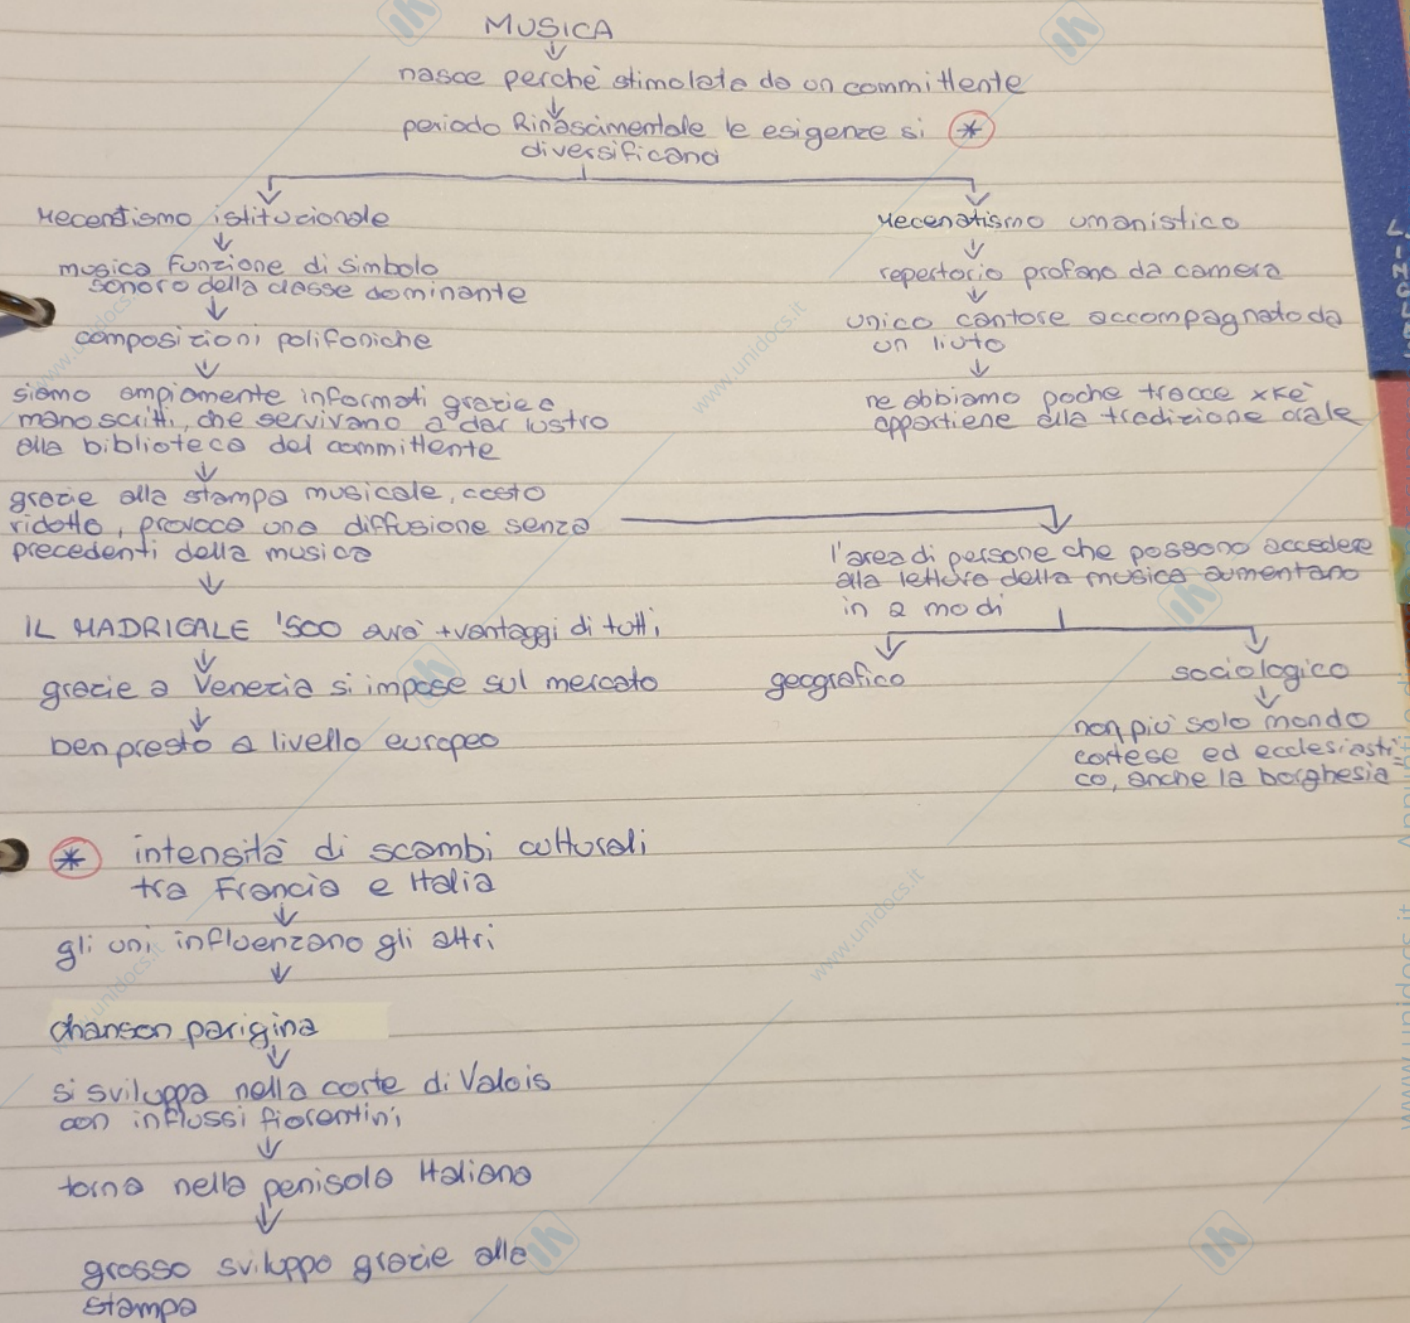 MUSICA
nasce perchè stimolata da un committente
periodo Rinascimentale le esigenze si *
diversificano
Mecentismo istituzionale
musica funzione di simbolo
sonoro della classe dominante
composizioni polifoniche
siamo ampiamente informati grazie a
manoscritti, che servivano a dar lustro
alla biblioteca del committente
grazie alla stampa musicale, costo
ridotto, provoca una diffusione senza
precedenti della musica
IL MADRIGALE '500 avrà + vantaggi di tutti,
grazie a Venezia si impose sul mercato
ben presto a livello europeo
Mecenatismo umanistico
repertorio profano da camera
unico cantore accompagnato da
un liuto
ne abbiamo poche tracce xkè
appartiene alla tradizione orale
l'area di persone che possono accedere
alla lettura della musica aumentano
in 2 modi
geografico
sociologico
non più solo mondo
cortese ed ecclesiasti=
co, anche la borghesia
* intensità di scambi culturali
tra Francia e Italia
gli uni influenzano gli altri
chanson parigina
si sviluppa nella corte di Valois
con influssi fiorentini,
torna nella penisola Italiana
grosso sviluppo grazie alla
stampa
www.unidocs.it
www.unidocs.it
www.unidocs.it
www.unidocs.it
www.unidocs.it Appunti di